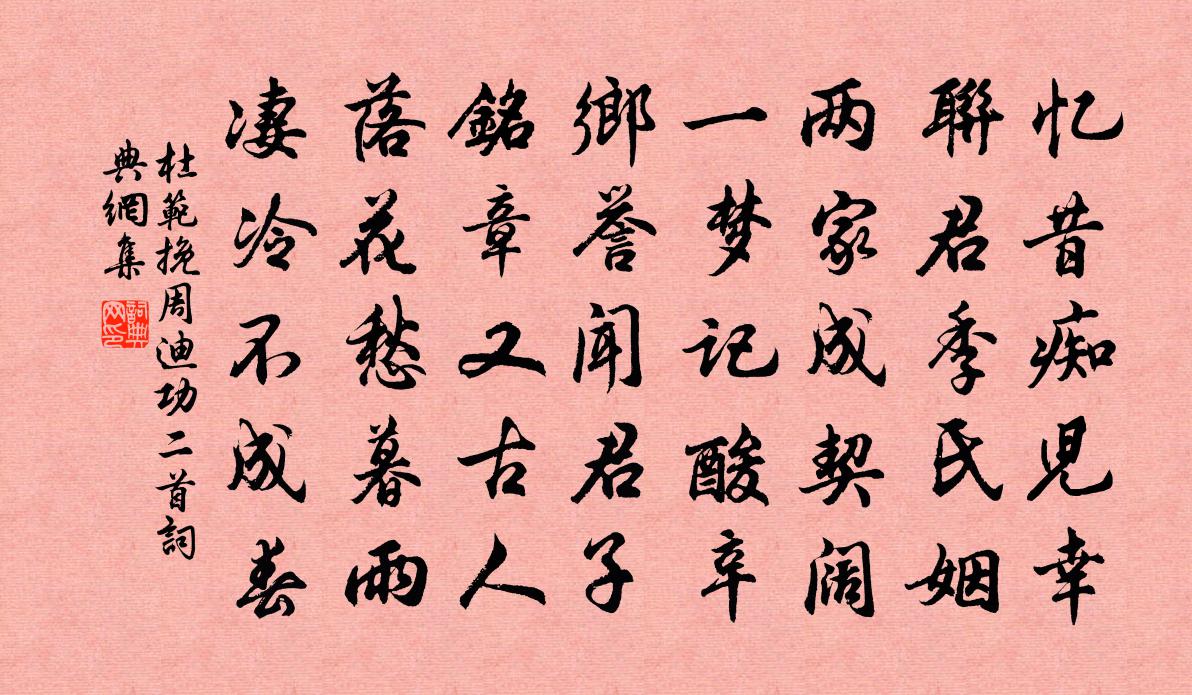 忆昔痴児幸
聯君季氏姻
两家成契阔
一梦记酸辛
鄉誉闻君子
銘章又古人
落花愁暮雨
凄冷不成春
杜範挽周迪功二首詞
典網集
詞典网印